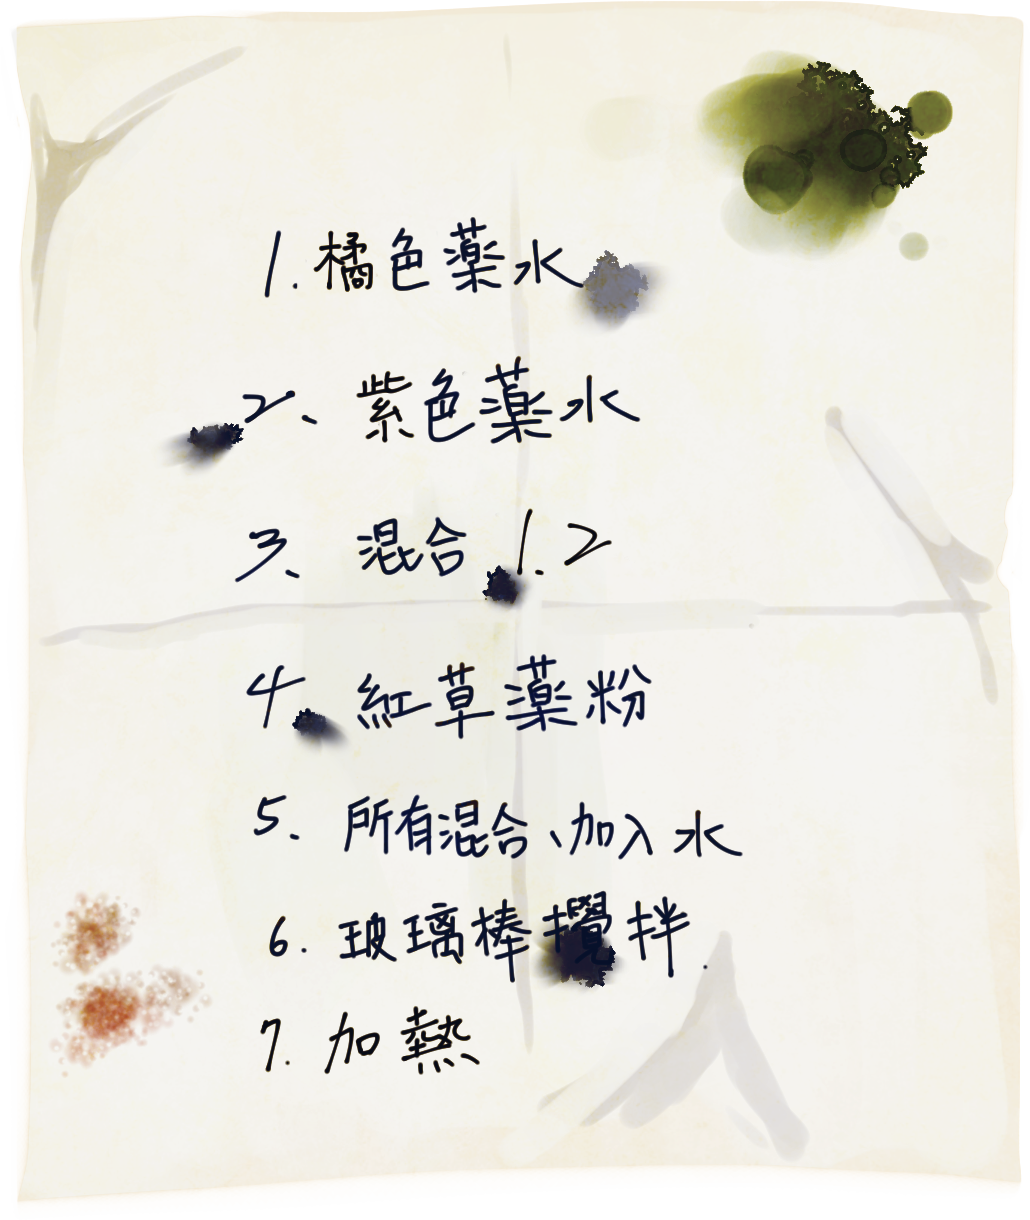 1. 橘色薬水
2、紫色薬水
3、混合 1.2
4、紅草薬粉
5、所有混合、加入水
6. 玻璃棒攪拌.
7. 加熱